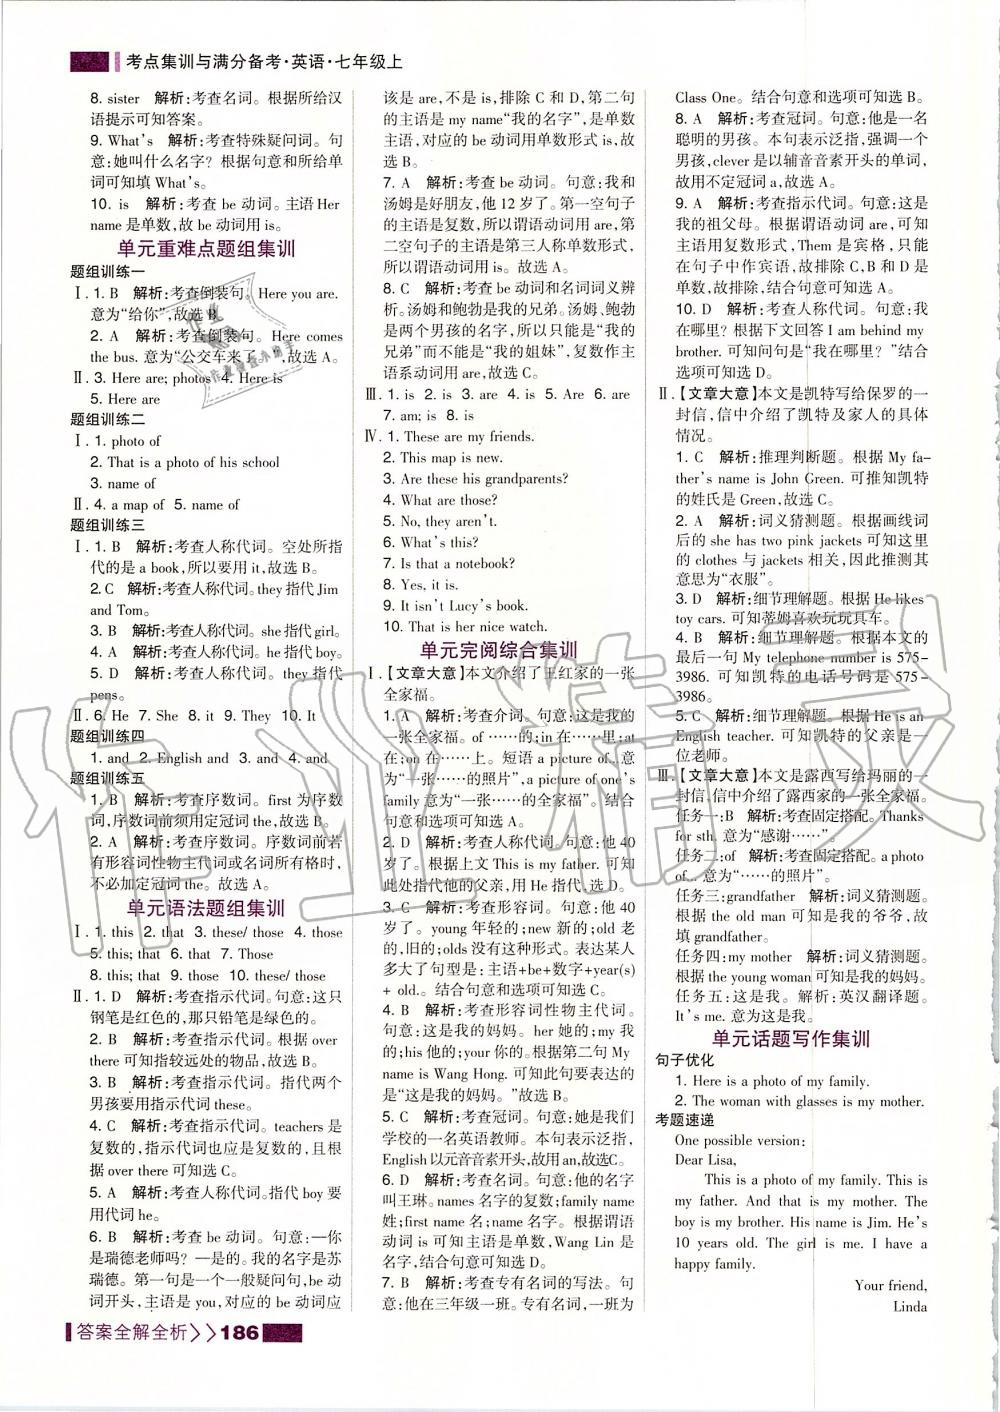 考点集训与满分备考·英语·七年级上
8. sister　解析:考查名词。根据所给汉
语提示可知答案。
9. What's　解析:考查特殊疑问词。句
意:她叫什么名字？根据句意和所给单
词可知填 What's。
10. is　解析:考查 be 动词。主语 Her
name 是单数,故 be 动词用 is。
单元重难点题组集训
题组训练一
Ⅰ. 1. B　解析:考查倒装句。Here you are.
意为“给你”,故选 B。
2. A　解析:考查倒装句。Here comes
the bus. 意为“公交车来了。”,故选 A。
Ⅱ. 3. Here are; photos　4. Here is
5. Here are
题组训练二
Ⅰ. 1. photo of
2. That is a photo of his school
3. name of
Ⅱ. 4. a map of　5. name of
题组训练三
Ⅰ. 1. B　解析:考查人称代词。空处所指
代的是 a book,所以要用 it,故选 B。
2. C　解析:考查人称代词。they 指代 Jim
and Tom。
3. B　解析:考查人称代词。she 指代 girl。
4. A　解析:考查人称代词。he 指代 boy。
5. D　解析:考查人称代词。they 指代
pens。
Ⅱ. 6. He　7. She　8. it　9. They　10. It
题组训练四
1. and　2. English and　3. and　4. and
题组训练五
1. B　解析:考查序数词。first 为序数
词,序数词前须用定冠词 the。故选 B。
2. A　解析:考查序数词。序数词前若
有形容词性物主代词或名词所有格时,
不必加定冠词 the。故选 A。
单元语法题组集训
Ⅰ. 1. this　2. that　3. these/ those　4. those
5. this; that　6. that　7. Those
8. this; that　9. those　10. these/ those
Ⅱ. 1. D　解析:考查指示代词。句意:这只
钢笔是红色的,那只铅笔是绿色的。
2. B　解析:考查指示代词。根据 over
there 可知指较远处的物品,故选 B。
3. B　解析:考查指示代词。指代两个
男孩要用指示代词 these。
4. C　解析:考查指示代词。teachers 是
复数的,指示代词也应是复数的,且根
据 over there 可知选 C。
5. A　解析:考查人称代词。指代 boy 要
用代词 he。
6. B　解析:考查 be 动词。句意:—你
是瑞德老师吗？—是的。我的名字是苏
瑞德。第一句是一个一般疑问句,be 动
词开头,主语是 you,对应的 be 动词应
该是 are,不是 is,排除 C 和 D,第二句
的主语是 my name“我的名字”,是单数
主语,对应的 be 动词用单数形式 is,故
选 B。
7. A　解析:考查 be 动词。句意:我和
汤姆是好朋友,他 12 岁了。第一空句子
的主语是复数,所以谓语动词用 are,第
二空句子的主语是第三人称单数形式,
所以谓语动词用 is。故选 A。
8. C　解析:考查 be 动词和名词词义辨
析。汤姆和鲍勃是我的兄弟。汤姆、鲍勃
是两个男孩的名字,所以只能是“我的
兄弟”而不能是“我的姐妹”,复数作主
语系动词用 are。故选 C。
Ⅲ. 1. is　2. is　3. are　4. is　5. Are　6. are
7. am; is　8. is
Ⅳ. 1. These are my friends.
2. This map is new.
3. Are these his grandparents?
4. What are those?
5. No, they aren't.
6. What's this?
7. Is that a notebook?
8. Yes, it is.
9. It isn't Lucy's book.
10. That is her nice watch.
单元完阅综合集训
Ⅰ.【文章大意】本文介绍了王红家的一张
全家福。
1. A　解析:考查介词。句意:这是我的
一张全家福。of ……的;in 在……里;at
在;on 在……上。短语 a picture of…意
为“一张……的照片”,a picture of one's
family 意为“一张……的全家福”。结合
句意和选项可知选 A。
2. D　解析:考查人称代词。句意:他 40
岁了。根据上文 This is my father. 可知
此处指代他的父亲,用 He 指代,选 D。
3. C　解析:考查形容词。句意:他 40
岁了。young 年轻的;new 新的;old 老
的,旧的;olds 没有这种形式。表达某人
多大了句型是：主语+be+数字+year(s)
+ old.。结合句意和选项可知选 C。
4. B　解析:考查形容词性物主代词。
句意:这是我的妈妈。her 她的;my 我
的;his 他的;your 你的。根据第二句 My
name is Wang Hong. 可知此句意思应
是“这是我的妈妈。”故选 B。
5. C　解析:考查冠词。句意:她是我们
学校的一名英语教师。本句表示泛指,
English 以元音音素开头,故用 an,故选C。
6. D　解析:考查名词。句意:他的名字
叫王琳。names 名字的复数;family name
姓;first name 名;name 名字。根据谓语
动词 is 可知主语是单数,Wang Lin 是
名字,结合句意可知选 D。
7. B　解析:考查专有名词的写法。句
意:他在三年级一班。专有名词,一班为
Class One。结合句意和选项可知选 B。
8. A　解析:考查冠词。句意:他是一名
聪明的男孩。本句表示泛指,强调一个
男孩,clever 是以辅音音素开头的单词,
故用不定冠词 a,故选 A。
9. A　解析:考查指示代词。句意:这是
我的祖父母。根据谓语动词 are,可知
主语用复数形式,Them 是宾格,只能
在句子中作宾语,故排除 C,B 和 D 是
单数,故排除,结合句意可知选 A。
10. D　解析:考查人称代词。句意:我
在哪里？根据下文回答 I am behind my
brother. 可知问句是“我在哪里？”结合
选项可知选 D。
Ⅱ.【文章大意】本文是凯特写给保罗的一
封信,信中介绍了凯特及家人的具体
情况。
1. C　解析:推理判断题。根据 My fa-
ther's name is John Green. 可推知凯特
的姓氏是 Green,故选 C。
2. A　解析:词义猜测题。根据画线词
后的 she has two pink jackets 可知这里
的 clothes 与 jackets 相关,因此推测其
意思为“衣服”。
3. D　解析:细节理解题。根据 He likes
toy cars. 可知蒂姆喜欢玩玩具车。
4. B　解析:细节理解题。根据本文的
最后一句 My telephone number is 575-
3986. 可知凯特的电话号码是 575-
3986。
5. C　解析:细节理解题。根据 He is an
English teacher. 可知凯特的父亲是一
位老师。
Ⅲ.【文章大意】本文是露西写给玛丽的一
封信,信中介绍了露西家的一张全家福。
任务一:B　解析:考查固定搭配。Thanks
for sth. 意为“感谢……”。
任务二:of　解析:考查固定搭配。a photo
of… 意为“……的照片”。
任务三:grandfather　解析:词义猜测题。
根据 the old man 可知是我的爷爷,故
填 grandfather。
任务四:my mother　解析:词义猜测题。
根据 the young woman 可知是我的妈妈。
任务五:这是我。解析:英汉翻译题。
It's me. 意为这是我。
单元话题写作集训
句子优化
1. Here is a photo of my family.
2. The woman with glasses is my mother.
考题速递
One possible version:
Dear Lisa,
This is a photo of my family. This is
my father. And that is my mother. The
boy is my brother. His name is Jim. He's
10 years old. The girl is me. I have a
happy family.
Your friend,
Linda
答案全解全析>>186
作业精灵